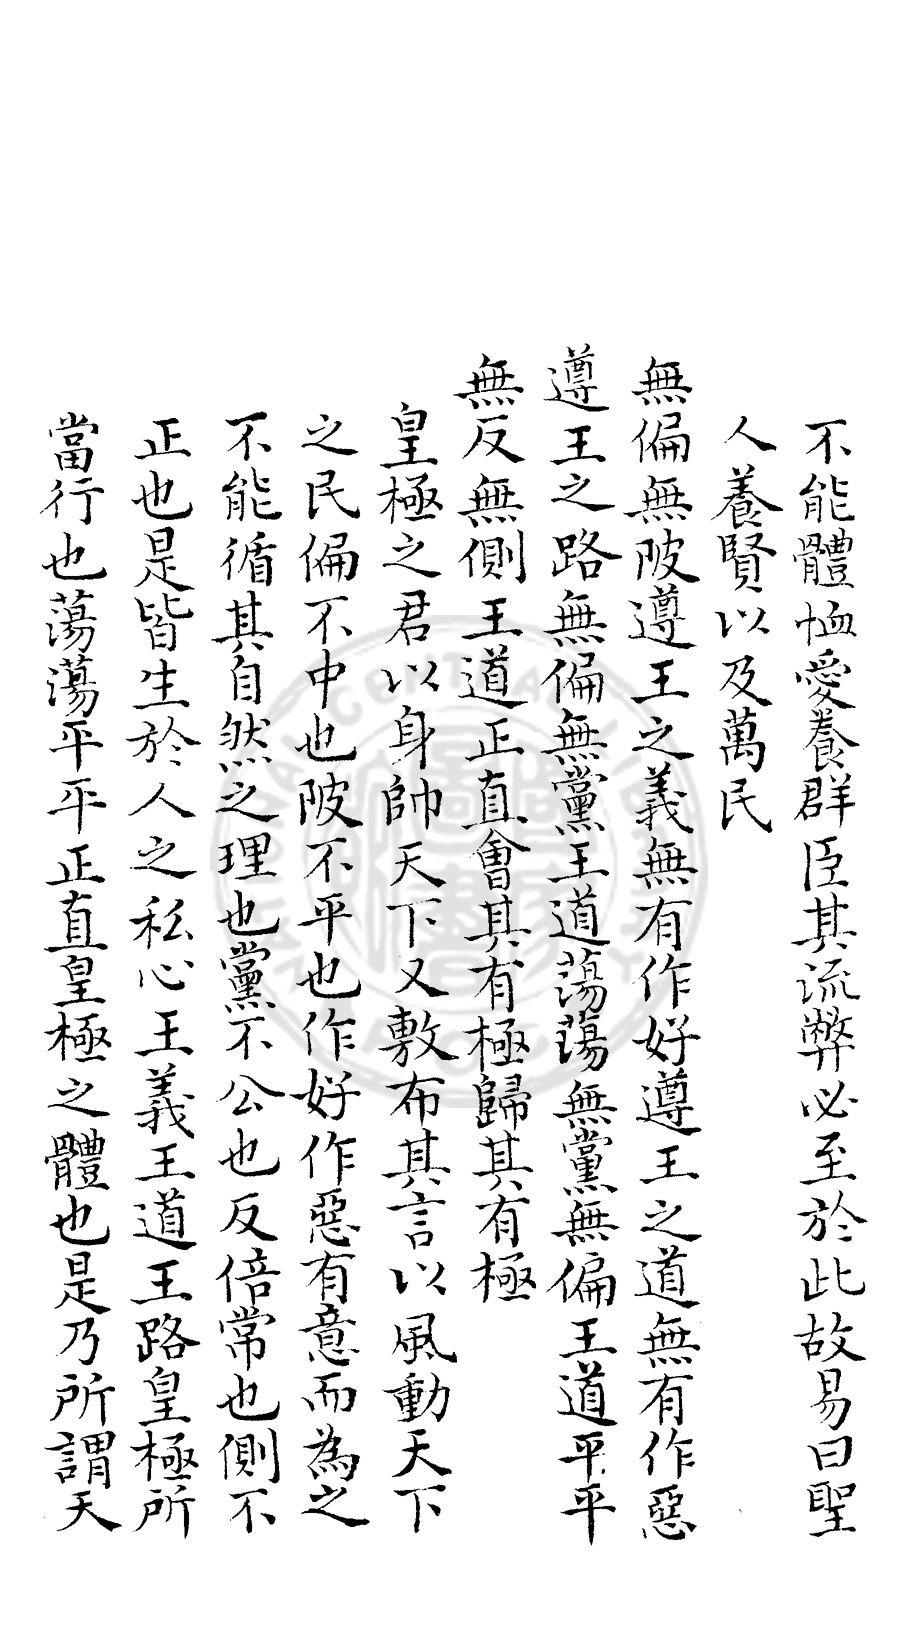 不能體恤愛養群臣其流弊必至於此故易曰聖
人養賢以及萬民
無偏無陂遵王之義無有作好遵王之道無有作惡
遵王之路無偏無黨王道蕩蕩無黨無偏王道平平
無反無側王道正直會其有極歸其有極
皇極之君以身帥天下又敷布其言以風動天下
之民偏不中也陂不平也作好作惡有意而為之
不能循其自然之理也黨不公也反倍常也側不
正也是皆生於人之私心王義王道王路皇極所
當行也蕩蕩平平正直皇極之體也是乃所謂天